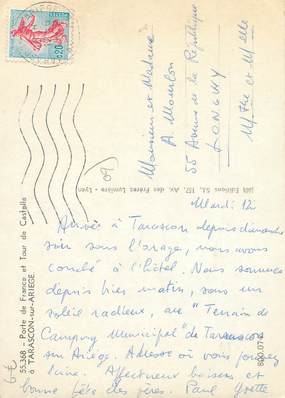 Mardi 12
Arrivés à Tarascon depuis dimanche
soir sous l'orage, nous avons
couché à l'hôtel. Nous sommes
depuis hier matin, sous un
soleil radieux, au "Terrain de
Camping Municipal" de Tarascon
sur Ariège. Adresse où vous pouvez
écrire. Affectueux baisers et
bonne fête des pères. Paul Yvette
Monsieur et Madame
A. Mourlon
55 Avenue de la République
LONGWY
Mthe et Melle
55.368 - Porte de France et Tour de Castella
à TARASCON-sur-ARIÈGE
Editions SL, 107, Av. des Frères Lumière - Lyon
0,20
09
6€